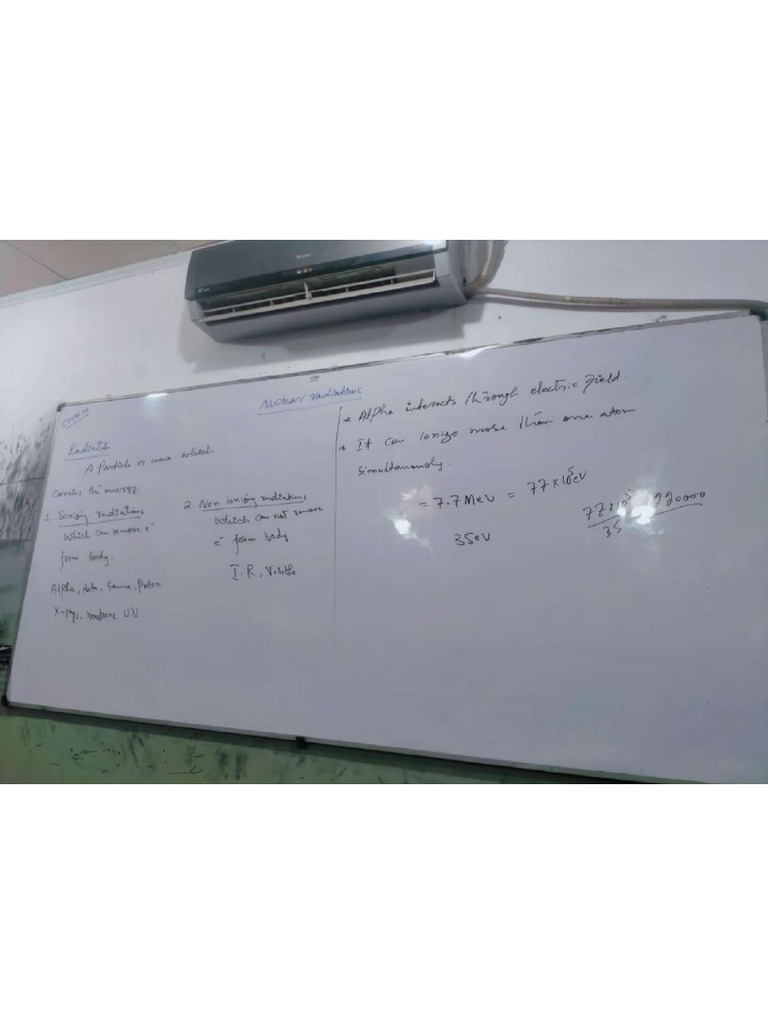 Nuclear radiations
Radiation
A Particle or wave which
Carries the energy.
1. Ionizing radiations
Which can remove e⁻
from body.
Alpha, Beta, Gama, Proton
X-rays, Neutrons U.V
2. Non ionizing radiations
Which can not remove
e⁻ form body
I.R, Visible
* Alpha interacts through electric field.
* It can ionize more than one atom
simultaneously.
= 7.7 MeV = 77×10⁵eV
35eV
77×10⁵
35